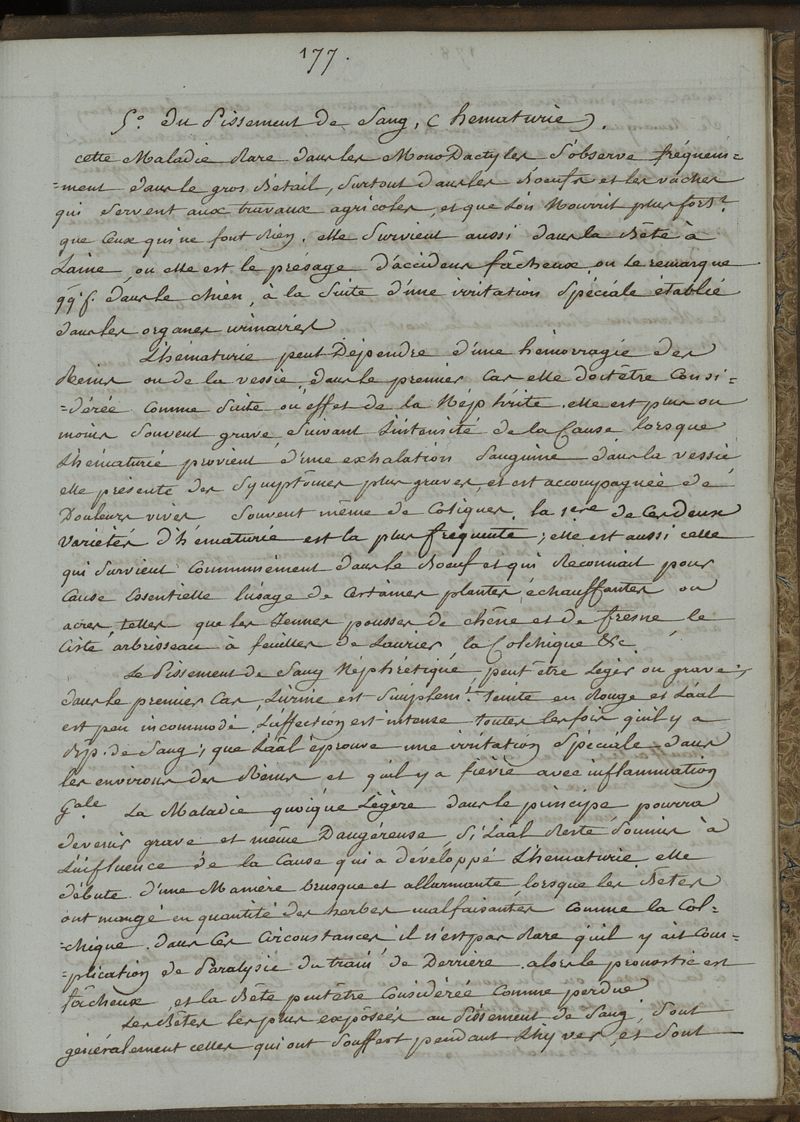 177.
5.° du Pissement de Sang, (hematurie).
cette Maladie Rare dans les MonoDactyles S'observe fréquem=
=ment dans le gros Betail, Surtout dans les Boeufs et les vaches
qui Servent aux travaux agricoles, et que Lon Nourrit plus fort.t
que Ceux qui ne font Rien. elle Survient aussi dans la Bête à
Laine, ou elle est le présage d'accidens fâcheux, on Le remarque
qq.f. dans le chien, à la Suite d'une irritation Spéciale établie
dans les organes urinaires
L'hématurie peut Dépendre d'une hémorragie des
Reins ou de la vessie, dans le premier Cas elle doit être Consi=
=dérée Comme Suite ou effet de la Néphrite. elle est plus ou
moins Souvent grave Suivant L'intensité de la Cause, lorsque
L'hématurie provient d'une exhalation Sanguine dans la vessie
elle présente des Symptômes plus graves, et est accompagnée de
Douleurs vives Souvent même de Coliques. la 1ere de Ces deux
varietés d'hématurie est la plus fréquente; elle est aussi celle
qui Survient Communément dans le Boeuf et qui Reconnait pour
Cause Essentielle l'usage de Certaines plantes échauffantes ou
acres, telles que les Jeunes pousses de chêne et de fresne le
Ciste arbrisseau à feuilles de Laurier, la Colchique &c.
Le Pissement de Sang Néphrétique, peut être Léger ou grave;
dans le premier Cas, L'urine est Simplem.t teinte en Rouge et L'aal
est peu incommodé. L'affection est intense toutes les fois qu'il y a
Rp. de Sang; que L'aal éprouve une irritation Spéciale dans
les environs des Reins et qu'il y a fièvre avec inflammation
Gale. La Maladie quoique Légère dans le principe pourra
devenir grave et même Dangéreuse, Si L'aal Reste Soumis à
L'influence de la Cause qui a développé L'hematurie. elle
débute d'une Manière brusque et allarmante, lorsque les Bêtes
ont mangé en quantité des herbes malfaisantes Comme la Col=
=chique. dans Ces Circonstances il n'est pas Rare qu'il y ait Com=
=plication de Paralysie du train de Derrière. alors le pronostic est
fâcheux, et la Bête peut être Considérée Comme perdue
Les Bêtes les plus exposées au Pissement de Sang, Sont
généralement celles qui ont Souffert pendant L'hyver, et Sont